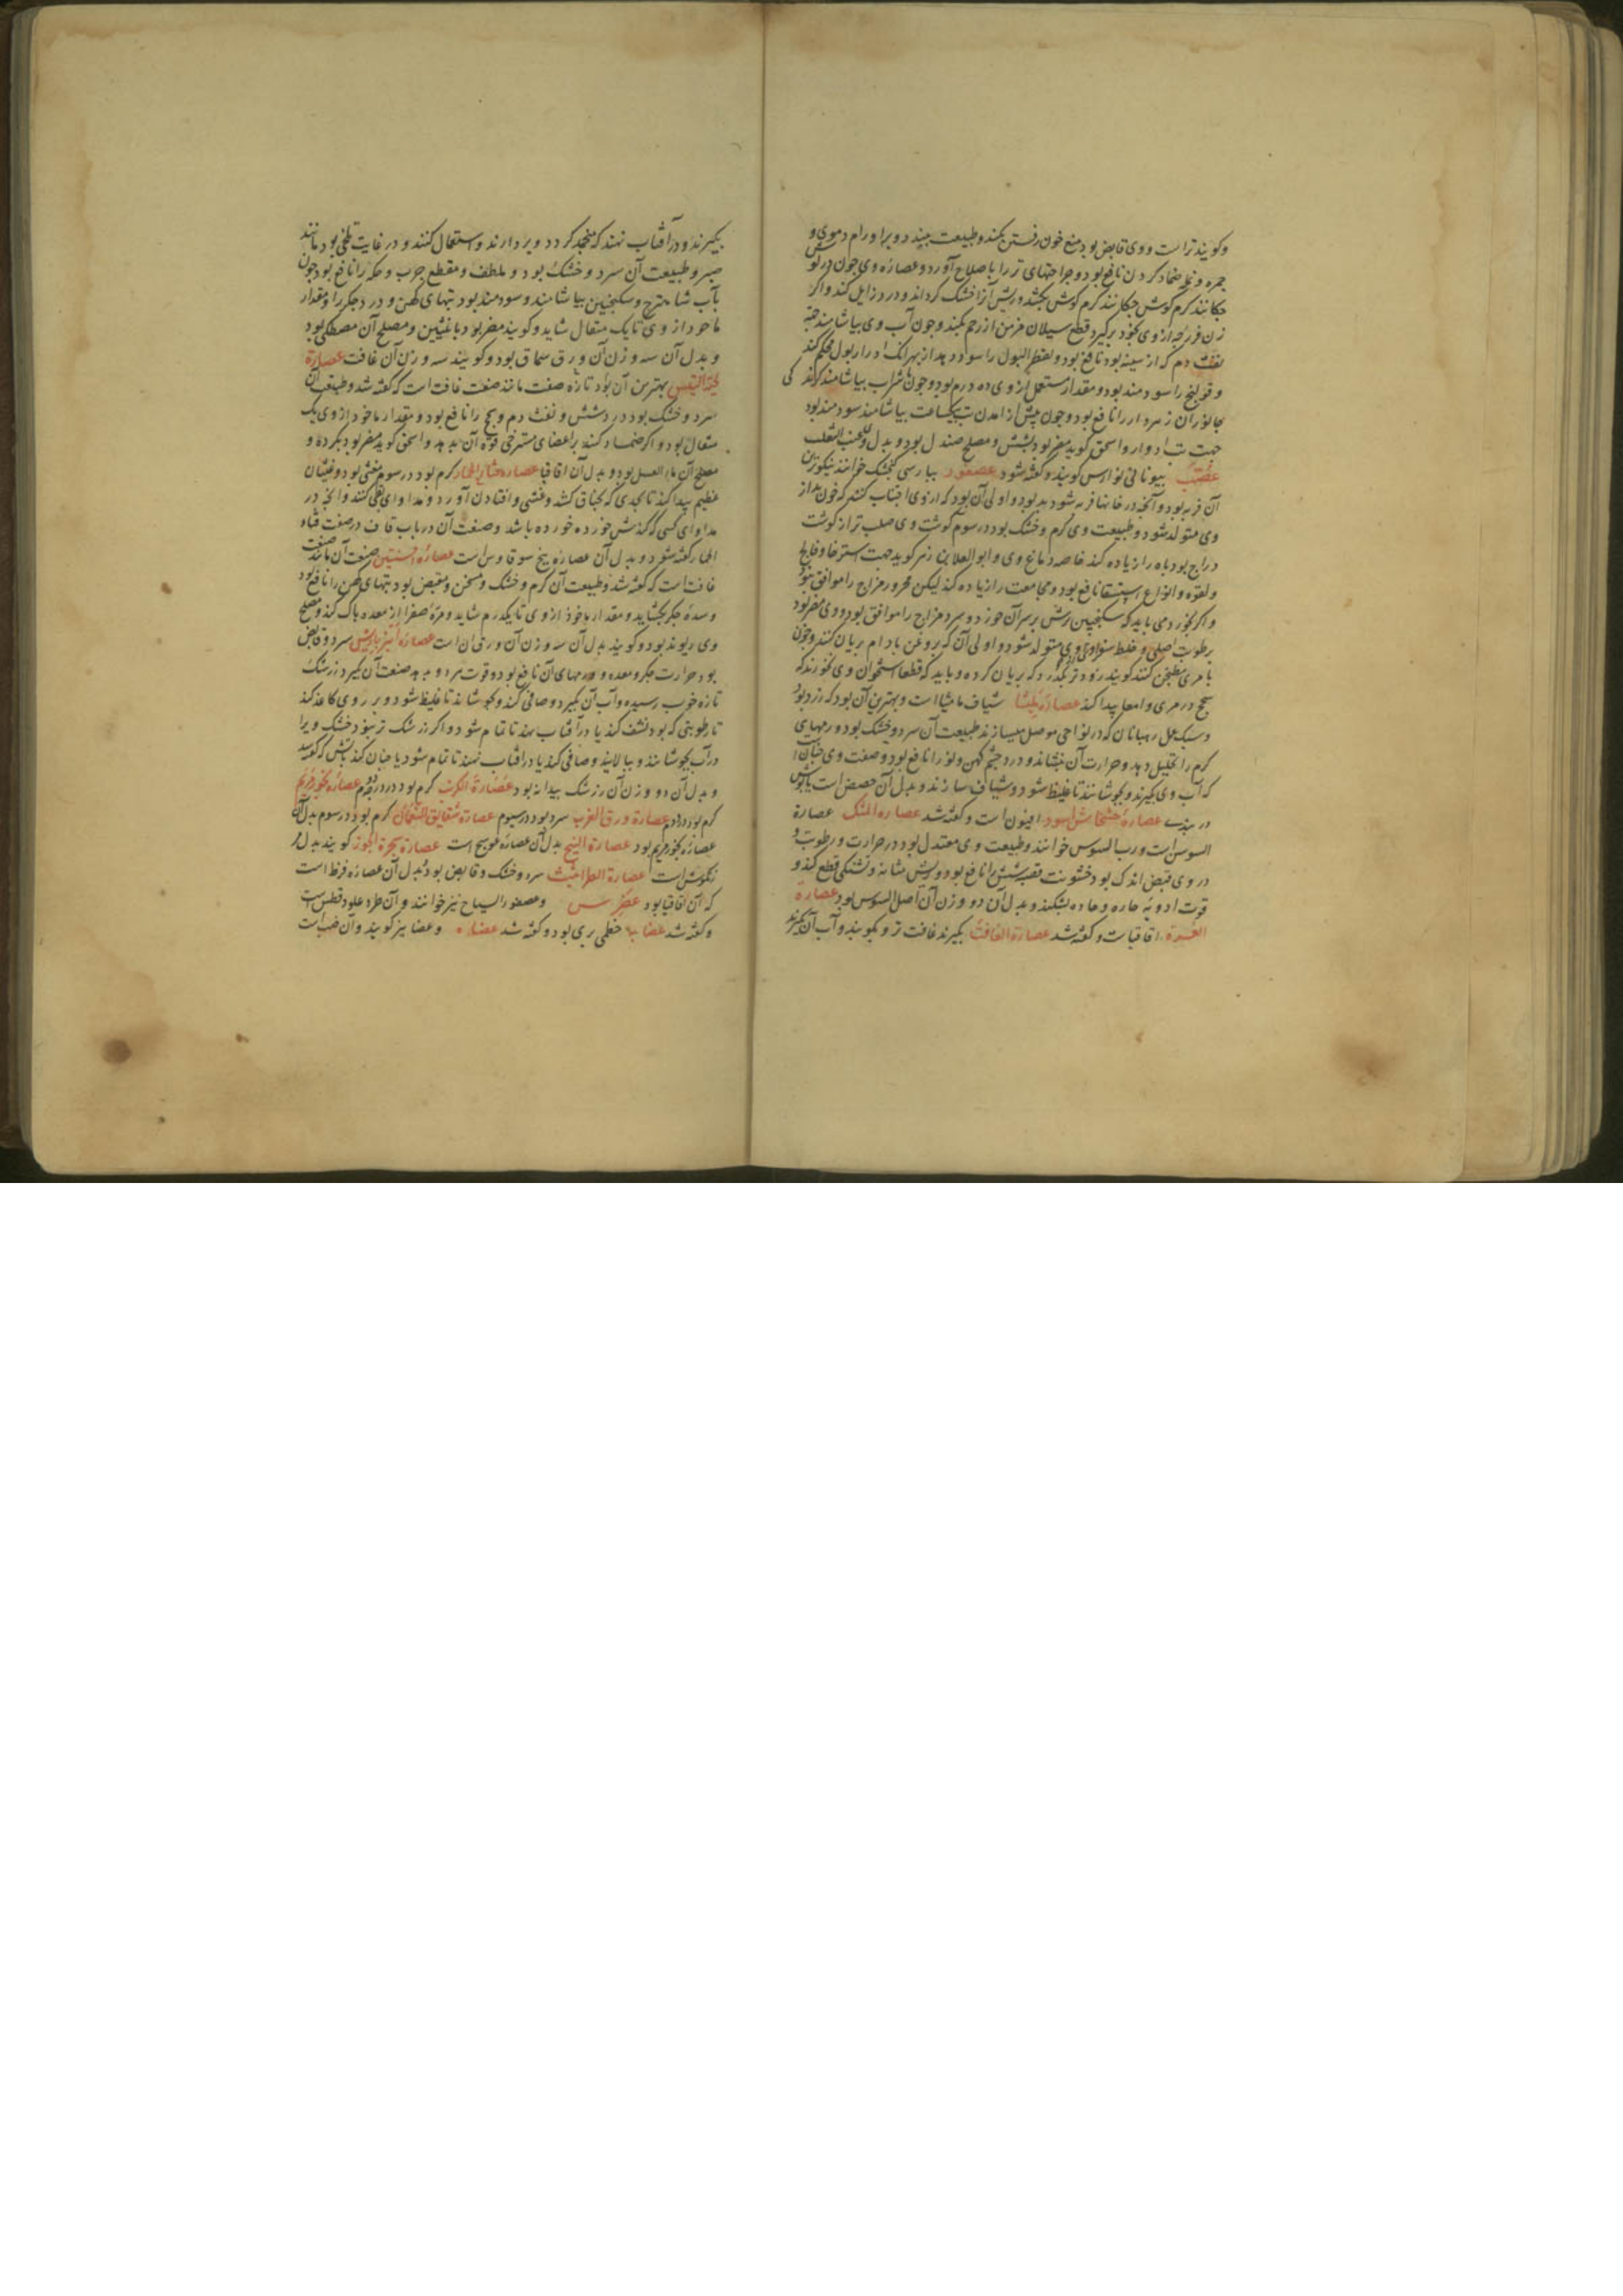 وکویند تراست ووی قابض بود منع خون رفتن بکند وطبیعت ببندد وبرا ورام دموی و
جمره ونمله ضماد کردن نافع بود وجراحتهای تر را باصلاح آورد وعصاره وی جون در کوش
جکانند کرم کوش بکشد وریش آنرا خشک کرداند ودرد زایل کند واکر
زن فرزجه ازوی بخود برکیرد قطع سیلان مزمن از رحم بکند وجون آب وی بیاشامند جهة
نفث دم که از سینه بود نافع بود وتقطیر البول را سود دهد از بهر انک ادرار بول محکم کند
وقولنج را سودمند بود ومقدار مستعمل ازوی ده درم بود وجون با شراب بیاشامند کزند کی
جانوران زهردار را نافع بود وجون پیش از آمدن تب بیکساعت بیاشامند سودمند بود
جهت تب ادوار واسحق کوید مضر بود بشش ومصلح صندل بود وبدل وی عنب الثعلب
بیونانی نوارس کویند وکفته شود عصفور بپارسی کنجشک خوانند نیکوترین
آن فربه بود وآنچه در خانها فربه شود بد بود واولی آن بود که ازوی اجتناب کنند که خون بد از
وی متولد شود وطبیعت وی کرم وخشک بود در سوم کوشت وی صلب تر از کوشت
دراج بود باه را زیاده کند خاصه دماغ وی وابو العلا بن زهر کوید جهت استرخا وفالج
ولقوه وانواع استسقا نافع بود ومجامعت را زیاده کند لیکن محرور مزاج را موافق نبود
واکر بخورد می باید که سکنجبین ترش برسر آن خورد وسرد مزاج را موافق بود ووی مضر بود
برطوبت اصلی وخلط سوداوی ازوی متولد شود واولی آن که بروغن بادام بریان کنند وجون
بامری مطجن کنند کویند زودتر بکذرد که بریان کرده وباید که قطعا استخوان وی نخورند که
سحج در مری وامعا پیدا کند عصارة شیاف مامیثا است وبهترین آن بود که زرد بود
وسبک عمل رهبانان که در نواحی موصل میسازند طبیعت آن سرد وخشک بود ورمهای
کرم را تحلیل دهد وحرارت آن بنشاند ودرد چشم کهن ونو را نافع بود وصفت وی جنان است
که آب وی بکیرند وبجوشانند تا غلیظ شود وشیاف سازند وبدل آن حضض است یا
عصارة خشخاش اسود افیون است وکفته شد عصاره المسک عصارة
السوس است ورب السوس خوانند وطبیعت وی معتدل بود در حرارت ورطوبت و
در وی قبض اندک بود خشونت قصبه شش را نافع بود وریش مثانه وتشنکی قطع کند و
قوت ادویه حاره وحاده بشکند وبدل آن دو وزن آن اصل السوس بود عصارة
اقاقیاست وکفته شد عصارة الغافث بکیرند غافث تر وبکوبند وآب آن بکیرند
بکیرند ودر آفتاب نهند که منجمد کردد وبردارند واستعمال کنند ودر غایت تلخی بود مانند
صبر وطبیعت آن سرد وخشک بود وملطف ومقطع جرب وحکه را نافع بود جون
بآب شاهترج وسکنجبین بیاشامند وسودمند بود تبهای کهن ودرد جکر را ومقدار
ماخوذ از وی تا یک مثقال شاید وکویند مضر بود بانثیین ومصلح آن مصطکی بود
وبدل آن سه وزن آن ورق سماق بود وکویند سه وزن آن غافث عصارة
لحیة التیس بهترین آن بود تازه صفت مانند صفت غافث است که کفته شد وطبیعت آن
سرد وخشک بود در شش ونفث دم وبخ را نافع بود ومقدار ماخوذ از وی یک
مثقال بود واکر ضماد کنند بر اعضای مسترخی قوة آن بدهد واسحق کوید مضر بود بکرده و
مصلح آن ما العسل بود وبدل آن اقاقیا عصاره قثاء الحمار کرم بود در سوم مغثی بود وغثیان
عظیم پیدا کند تا بحدی که بخناق کشد وغشی وافتادن آورد ومداوای بقی کنند وانچه در
مداوای کسی که کندش خورده باشد وصفت آن در باب قاف در صفت قثاء
الحمار کفته شود وبدل آن عصاره بیخ سوقاوس است عصارة افسنتین صفت آن مانند صفت
غافث است که کفته شد وطبیعت آن کرم وخشک ومسخن ومقبض بود تبهای کهن را نافع بود
وسده جکر بکشاید ومقدار ماخوذ از وی تا یکدرم شاید ومرة صفرا از معده پاک کند ومصلح
وی ریوند بود وکویند بدل آن سه وزن آن ورق ان است عصارة انبرباریس سرد وقابض
بود حرارت جکر ومعده وورمهای آن نافع بود وقوت بدهد صنعت آن بکیرد زرشک
تازه خوب رسیده وآب آن بکیرد وصافی کند وبجوشاند تا غلیظ شود وبر روی کاغذ کند
تا رطوبتی که بود نشف کند یا در آفتاب نهند تا تمام شود واکر زرشک تر نبود خشک ویرا
در آب بجوشانند وبپالایند وصافی کنند یا در افتاب نهند تا تمام شود یا جنان کند بآتش که کفته شد
وبدل آن دو وزن آن زرشک بیدانه بود عصارة الکرنب کرم بود در درجه دوم عصارة بخور مریم
کرم بود در دوم عصارة ورق الغرب سرد بود در سیوم عصارة شقایق النعمان کرم بود در سوم بدل آن
عصاره بخور مریم بود عصارة البنج بدل آن عصاره موبج است عصارة شجرة الجوز کویند بدل
است عصارة الطراثیث سرد وخشک وقابض بود بدل آن عصاره قرظ است
که آن اقاقیا بود وعصفور السیاح نیز خوانند وآن
وکفته شد خطمی بری بود وکفته شد وعضا نیز کویند وآن ضب است